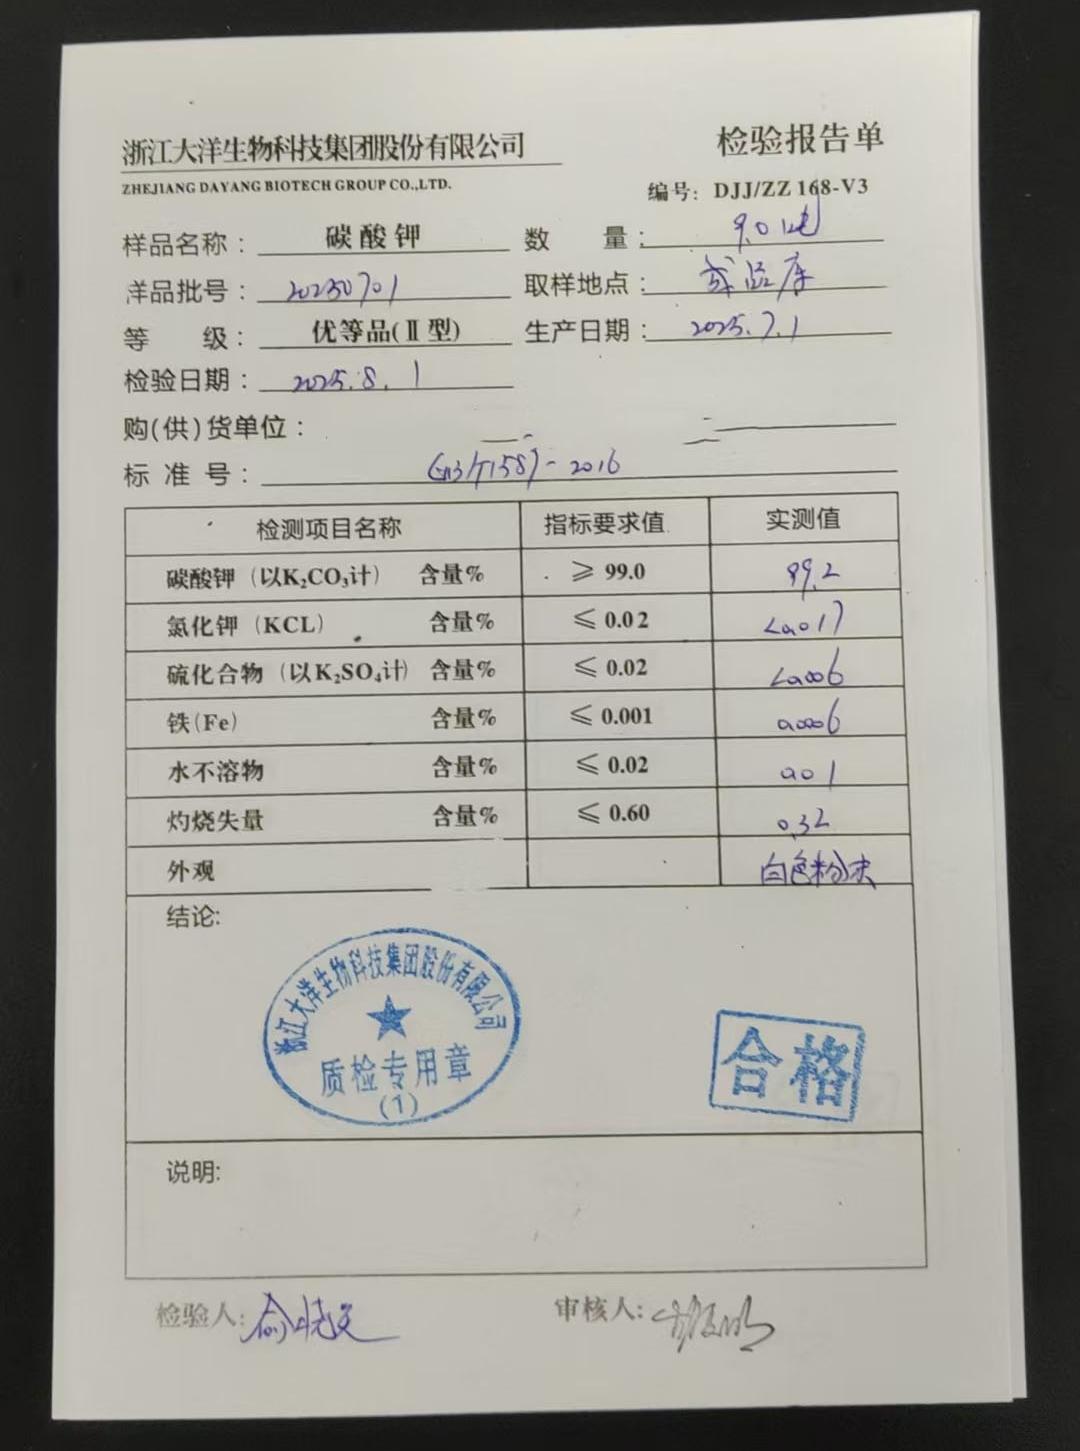 浙江大洋生物科技集团股份有限公司
检验报告单
ZHEJIANG DAYANG BIOTECH GROUP CO.,LTD.
编号: DJJ/ZZ 168-V3
样品名称: 碳酸钾 数 量: 9.0吨
洋品批号: 20250701 取样地点: 成品库
等 级: 优等品(Ⅱ型) 生产日期: 2025.7.1
检验日期: 2025.8.1
购(供)货单位:
标 准 号: GB/T1587-2016
检测项目名称 指标要求值 实测值
碳酸钾 (以K₂CO₃计) 含量% ≥ 99.0 99.2
氯化钾 (KCL) 含量% ≤ 0.02 <0.017
硫化合物 (以K₂SO₄计) 含量% ≤ 0.02 <0.006
铁(Fe) 含量% ≤ 0.001 0.0006
水不溶物 含量% ≤ 0.02 0.01
灼烧失量 含量% ≤ 0.60 0.32
外观 白色粉末
结论:
浙江大洋生物科技集团股份有限公司
质检专用章
(1)
合格
说明:
检验人: 审核人: